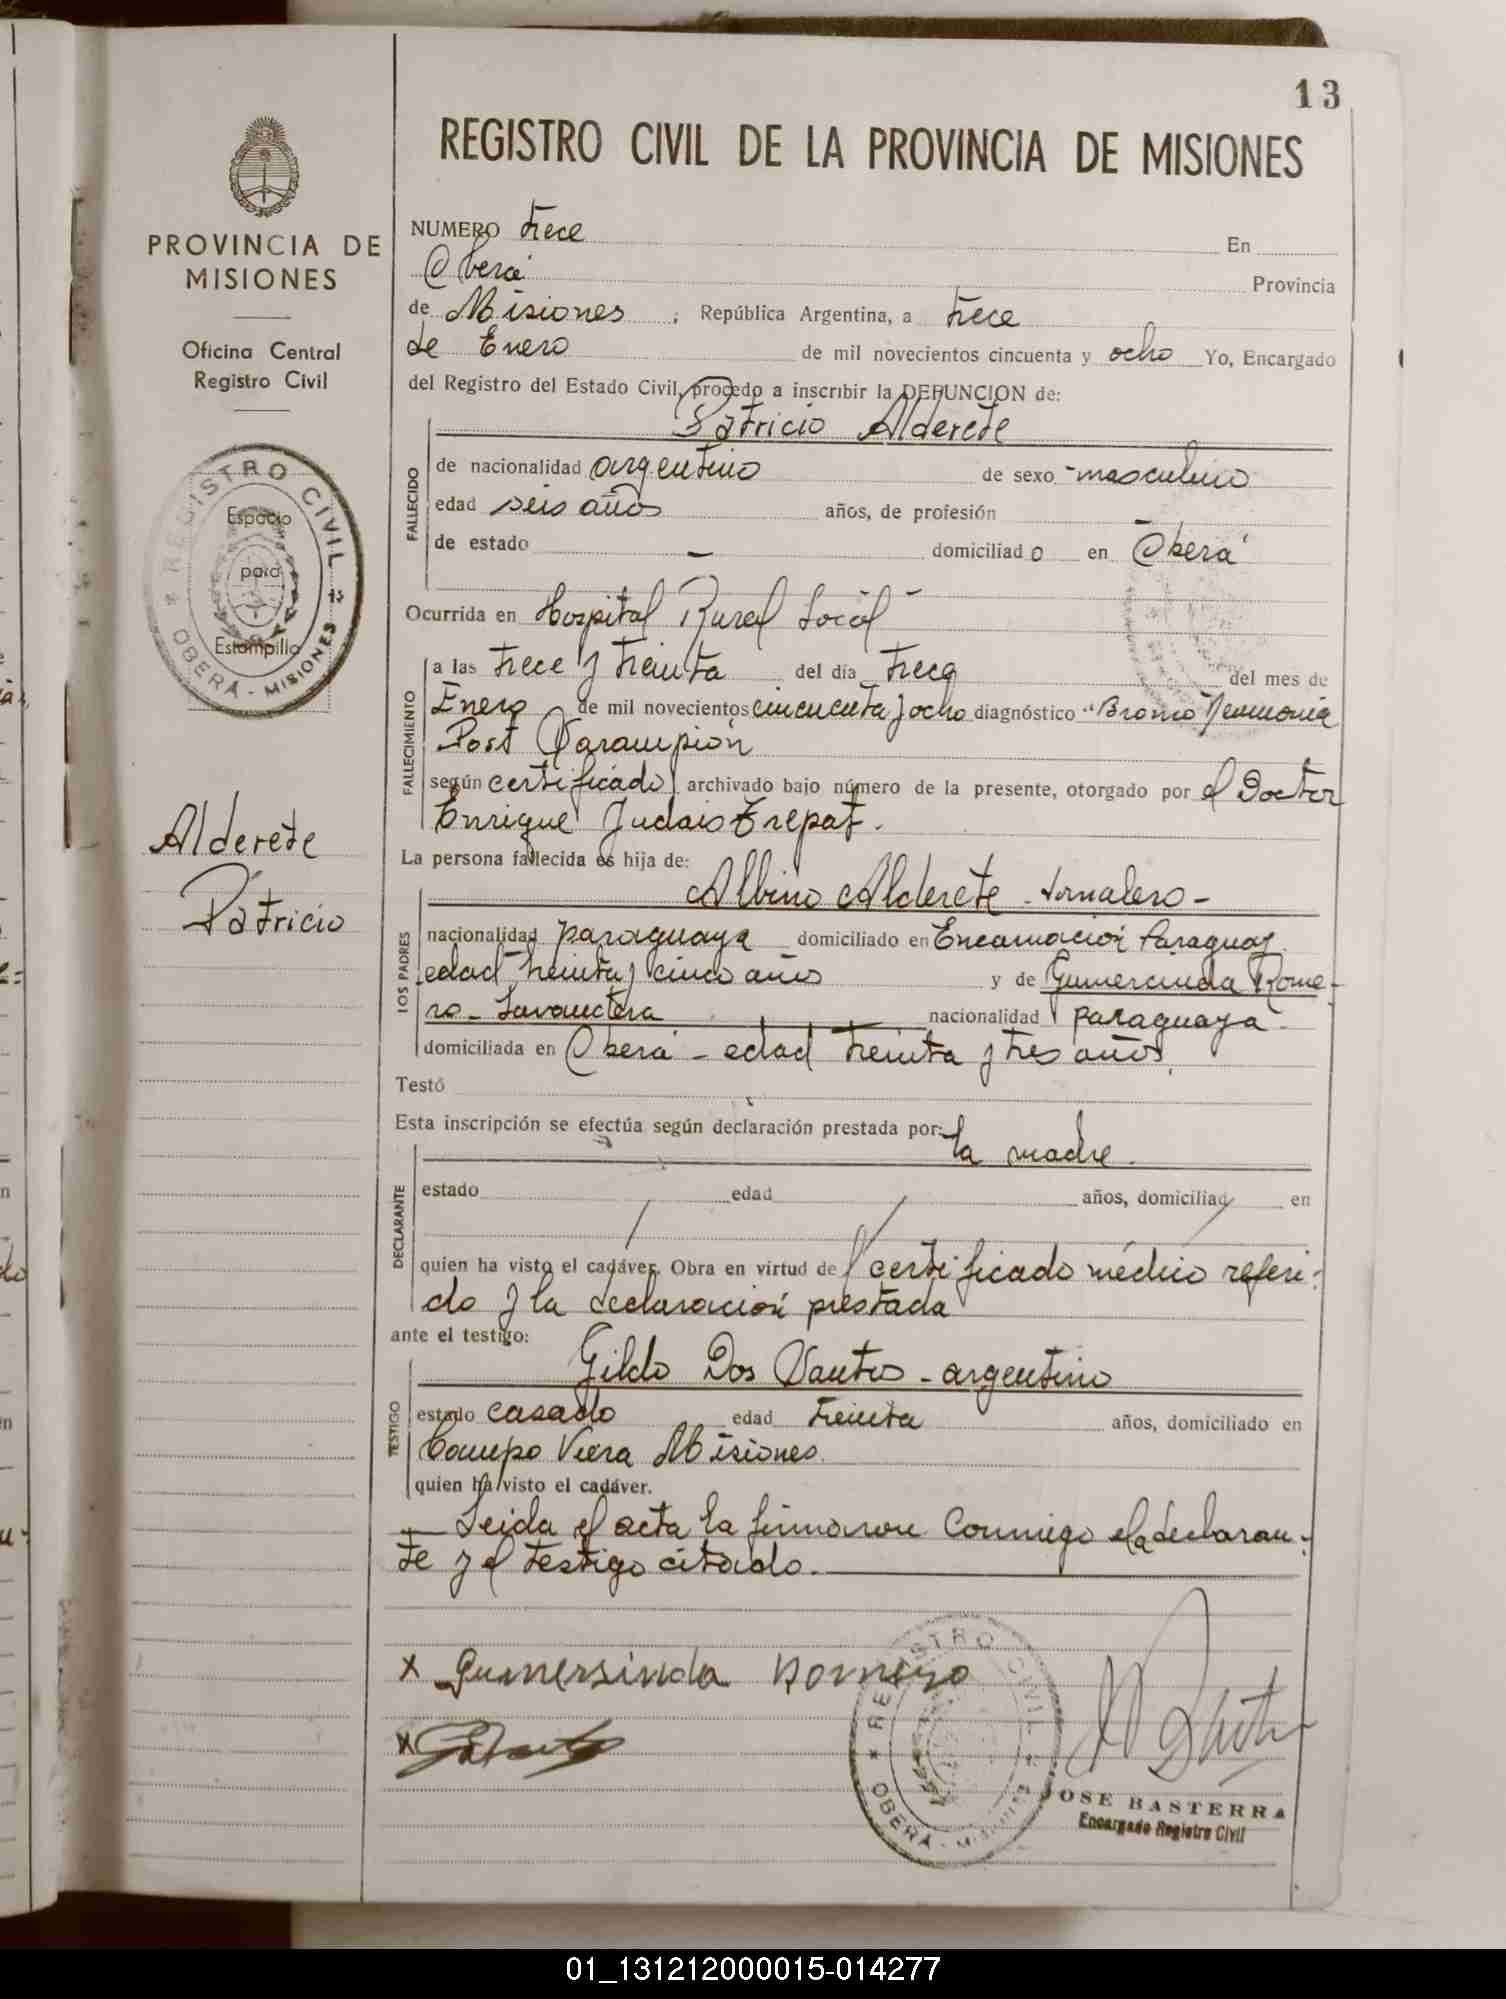 13
REGISTRO CIVIL DE LA PROVINCIA DE MISIONES
PROVINCIA DE
MISIONES
Oficina Central
Registro Civil
REGISTRO CIVIL
Espacio
para
Estampilla
* OBERÁ - MISIONES *
Alderete
Patricio
NUMERO trece En
Oberá Provincia
de Misiones, República Argentina, a trece
de Enero de mil novecientos cincuenta y ocho Yo, Encargado
del Registro del Estado Civil, procedo a inscribir la DEFUNCION de:
Patricio Alderete
FALLECIDO
de nacionalidad argentino de sexo masculino
edad seis años años, de profesión
de estado — domiciliado en Oberá
Ocurrida en Hospital Rural Local
FALLECIMIENTO
a las trece y treinta del día trece del mes de
Enero de mil novecientos cincuenta y ocho diagnóstico "Bronco Neumonia
Post Sarampión
según certificado archivado bajo número de la presente, otorgado por el Doctor
Enrique Judais Trepat.
La persona fallecida es hija de:
Albino Alderete - Jornalero -
LOS PADRES
nacionalidad paraguaya domiciliado en Encarnación Paraguay
edad treinta y cinco años y de Gumercinda Rome-
ro - nacionalidad paraguaya
domiciliada en Oberá - edad treinta y tres años
Testó
Esta inscripción se efectúa según declaración prestada por: la madre.
DECLARANTE
estado edad años, domiciliad en
quien ha visto el cadáver. Obra en virtud de certificado médico referi-
do y la declaración prestada
ante el testigo:
Gildo Dos Santos - argentino
TESTIGO
estado casado edad treinta años, domiciliado en
Campo Viera Misiones
quien ha visto el cadáver.
Leida el acta la firmaron Conmigo la declaran-
te y el testigo citado.
x Gumersinda Romero
x
REGISTRO CIVIL
* OBERÁ - MISIONES *
JOSE BASTERRA
Encargado Registro Civil
01_131212000015-014277